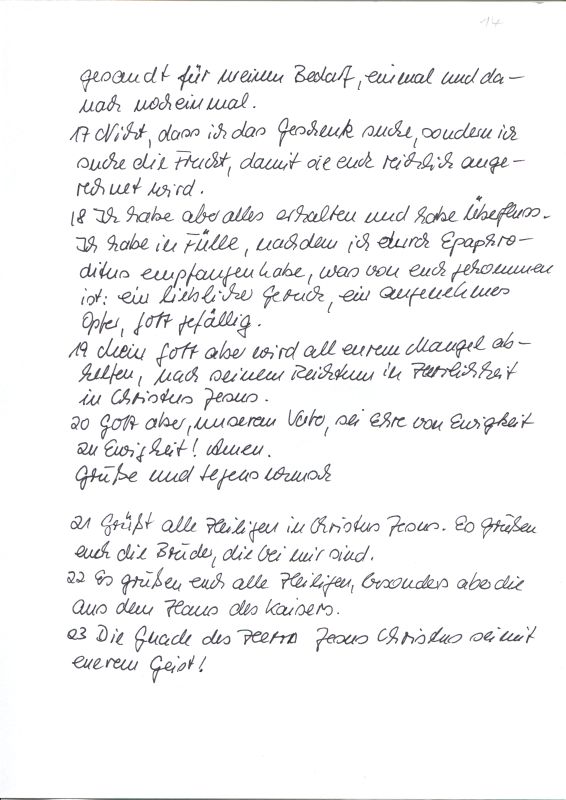 14
gesandt für meinen Bedarf, einmal und da-
nach noch einmal.
17 Nicht, dass ich das Geschenk suche, sondern ich
suche die Frucht, damit sie euch reichlich ange-
rechnet wird.
18 Ich habe aber alles erhalten und habe Überfluss.
Ich habe in Fülle, nachdem ich durch Epaphro-
ditus empfangen habe, was von euch gekommen
ist: ein lieblicher Geruch, ein angenehmes
Opfer, Gott gefällig.
19 Mein Gott aber wird all eurem Mangel ab-
helfen, nach seinem Reichtum in Herrlichkeit
in Christus Jesus.
20 Gott aber, unserem Vater, sei Ehre von Ewigkeit
zu Ewigkeit! Amen.
Grüße und Segenswunsch
21 Grüßt alle Heiligen in Christus Jesus. Es grüßen
euch die Brüder, die bei mir sind.
22 Es grüßen euch alle Heiligen, besonders aber die
aus dem Haus des Kaisers.
23 Die Gnade des Herrn Jesus Christus sei mit
eurem Geist!